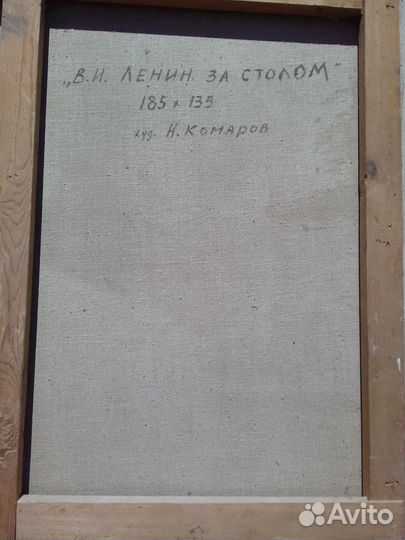 „В.И. ЛЕНИН ЗА СТОЛОМ"
185 х 135
худ. Н. КОМАРОВ
Avito